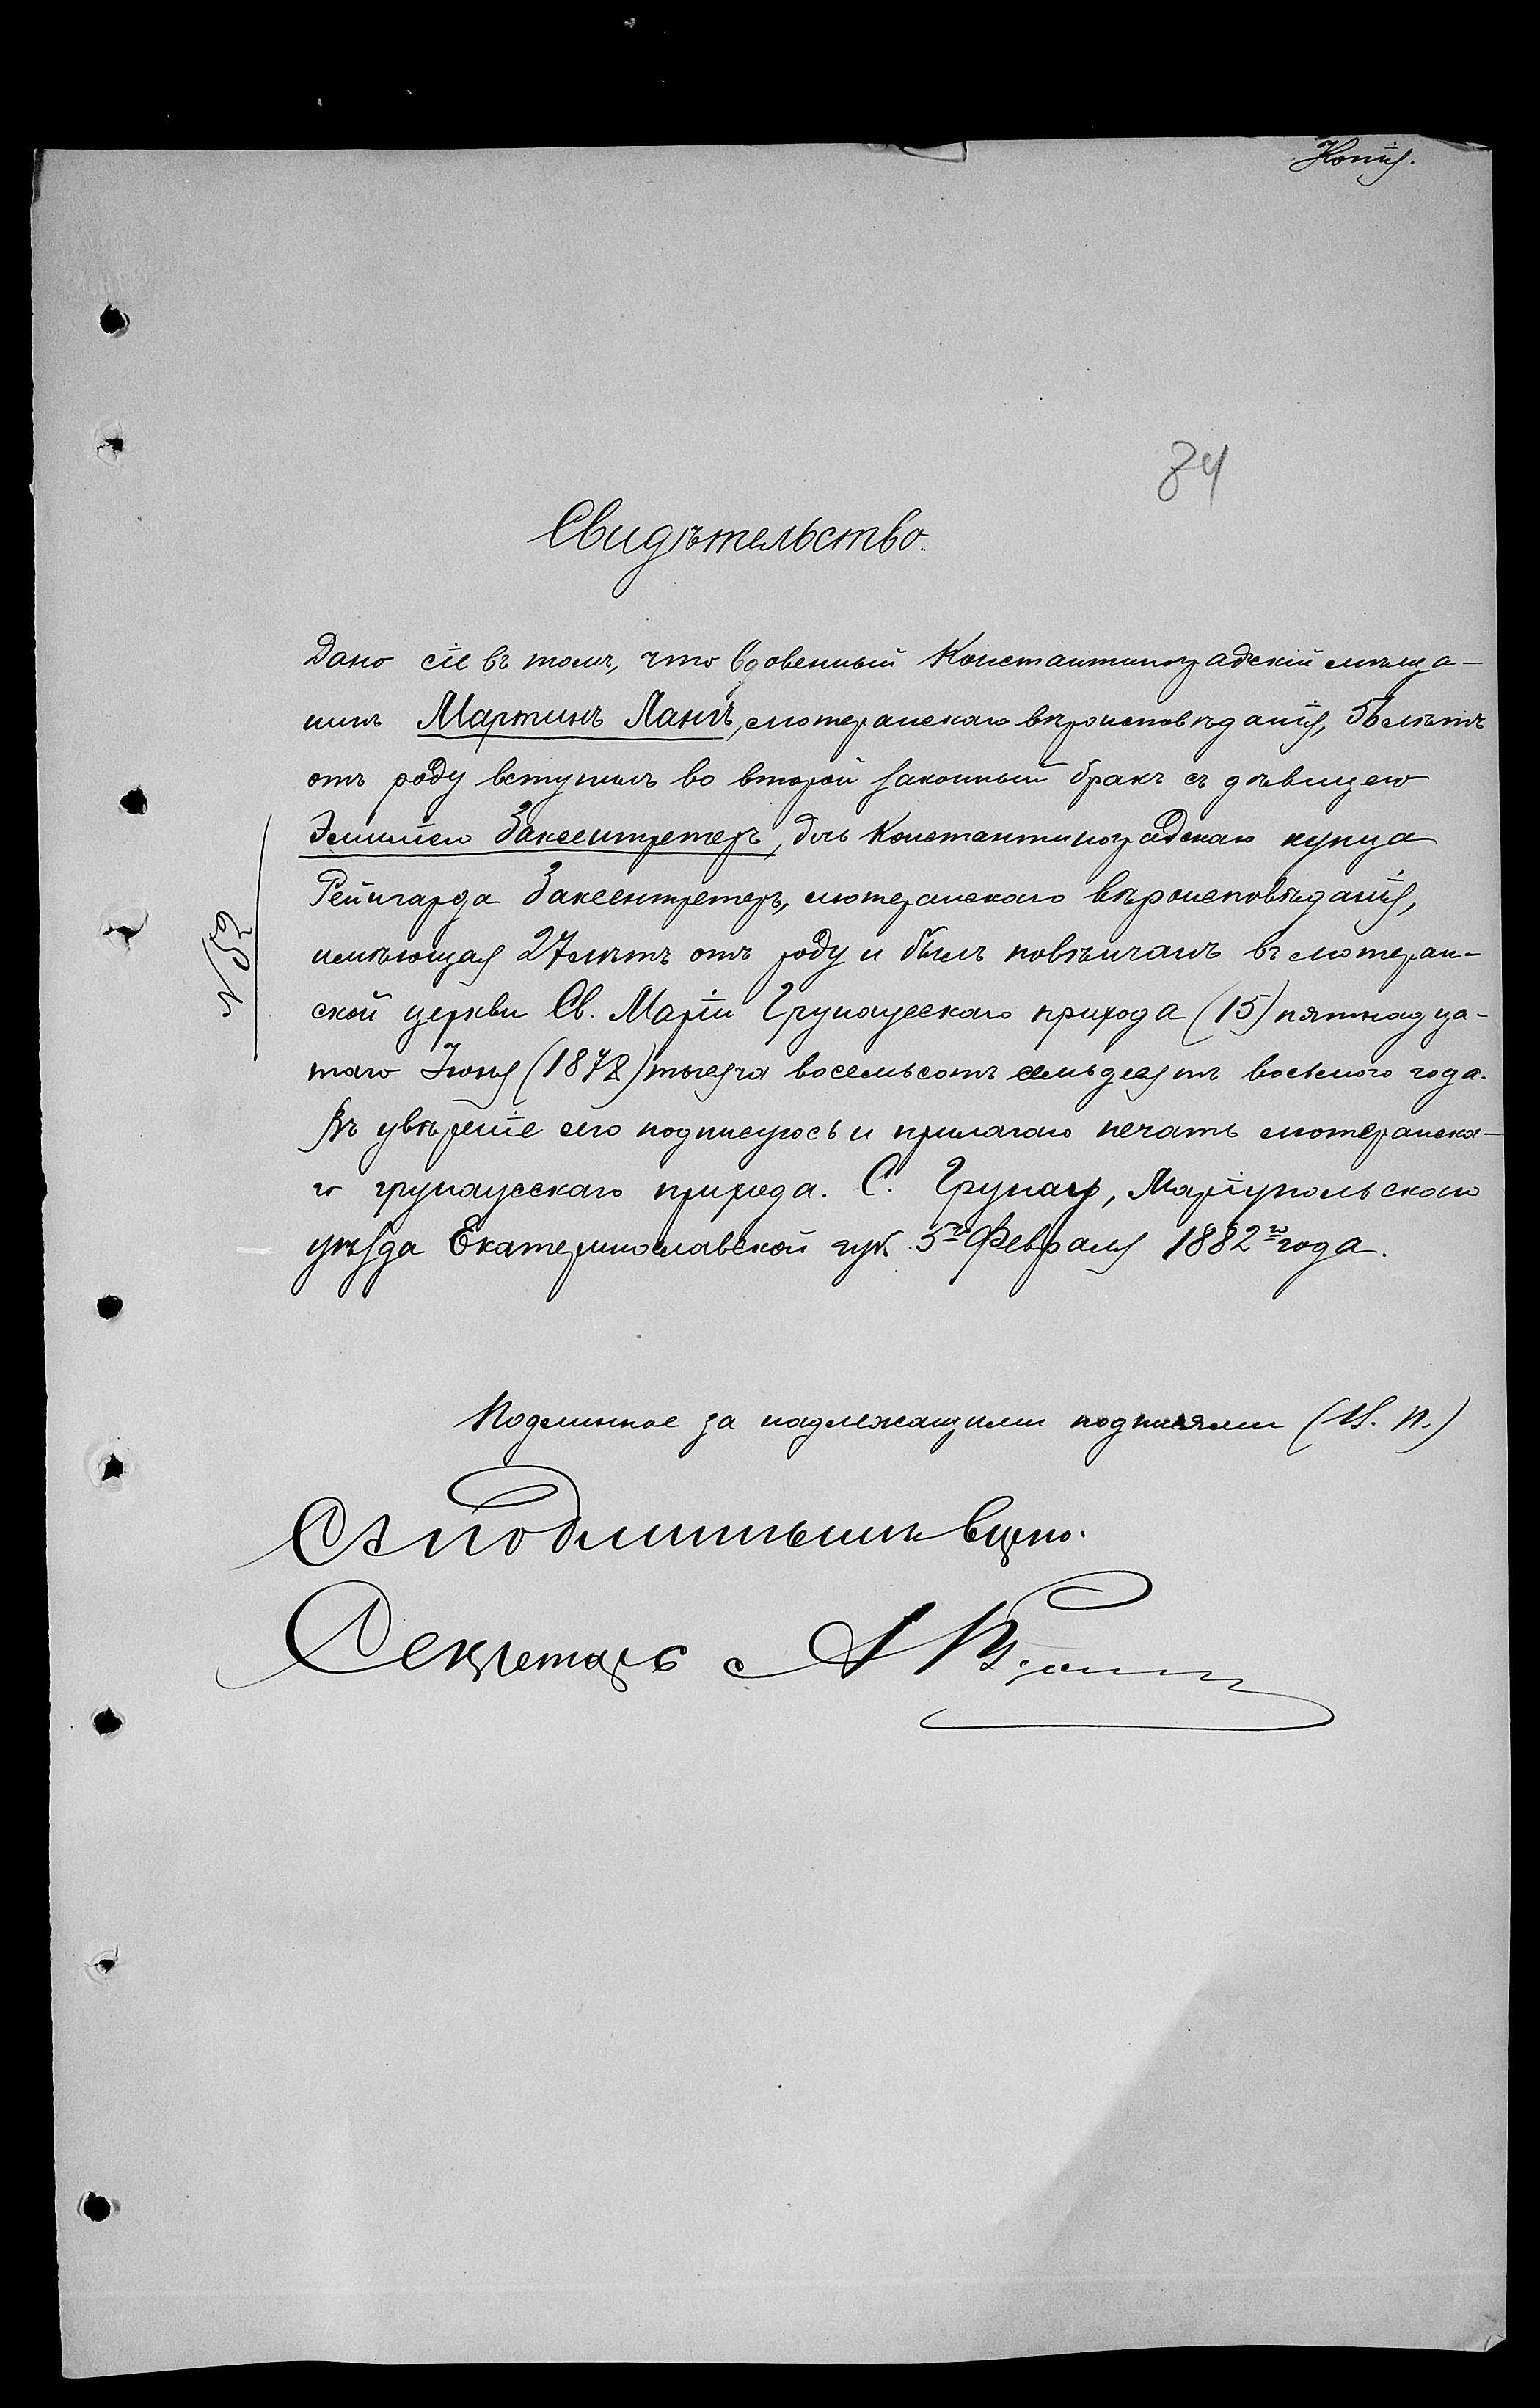 Копія.
84
Свидѣтельство.
Дано сіе въ томъ, что вдовенный Константиноградскій мѣща-
нинъ Мартинъ Лангъ, лютеранскаго вѣроисповѣданія, 56 лѣтъ
отъ роду вступилъ во второй законный бракъ съ дѣвицею
Эмиліею Заксентретеръ, дочь Константиноградскаго купца
Рейнгарда Заксентретеръ, лютеранскаго вѣроисповѣданія,
имѣющая 27 лѣтъ отъ роду и былъ повѣнчанъ въ лютеран-
ской церкви Св. Маріи Грунаусскаго прихода (15) пятнадца-
таго Іюня (1878) тысяча восемьсотъ семьдесятъ восьмого года.
Въ увѣреніе сего подписуюсь и прилагаю печать лютеранска-
го грунаусскаго прихода. С. Грунау, Маріупольскаго
уѣзда Екатеринославской губ. 5го Февраля 1882го года.
№ 52
Подлинное за надлежащими подписями (М. П.)
Съ подлиннымъ вѣрно.
Секретарь А